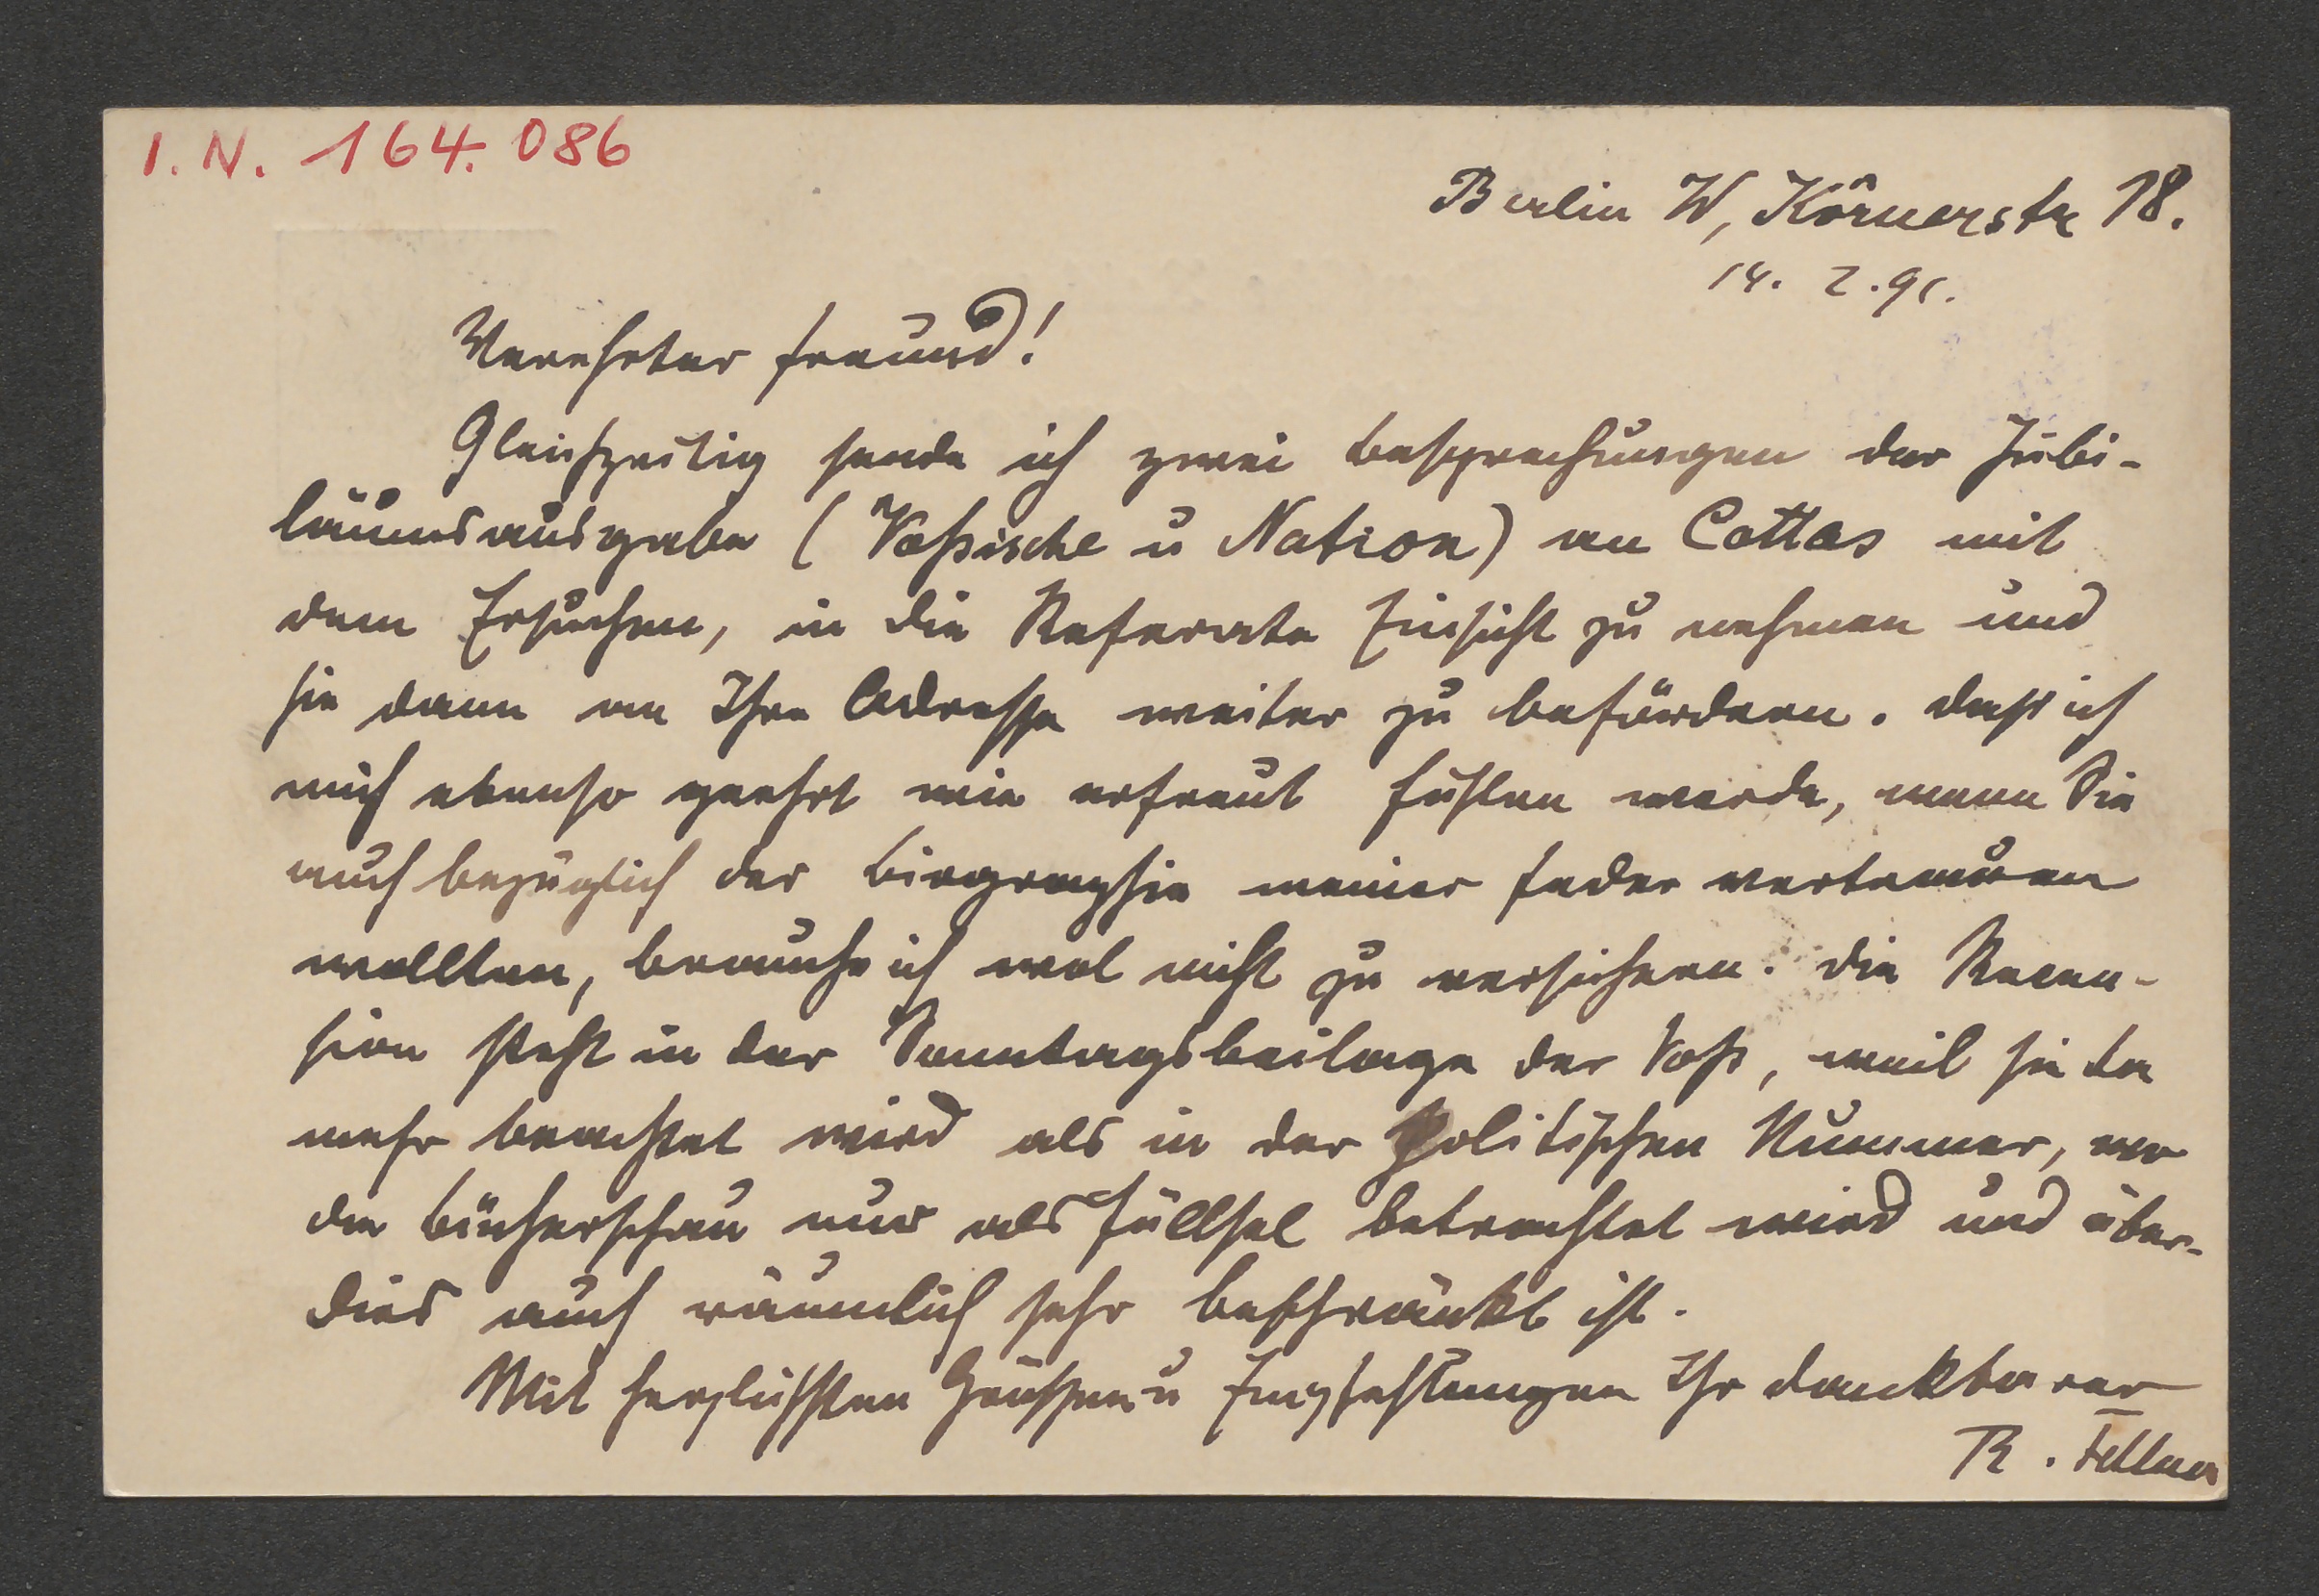 I. N. 164.086
Berlin W, Körnerstr 18.
14. 2. 91.
Verehrter Freund!
Gleichzeitig sende ich zwei Besprechungen der Jubi-
läumsausgabe (Voßische u Nation) an Cottas mit
dem Ersuchen, in die Referate Einsicht zu nehmen und
sie dann an Ihre Adresse weiter zu befördern. Daß ich
mich ebenso geehrt wie erfreut fühlen werde, wenn Sie
auch bezüglich der Biographie meiner Feder vertrauen
wollten, brauche ich wol nicht zu versichern. Die Recen-
sion steht in der Sonntagsbeilage der Voß, weil sie da
mehr beachtet wird als in der politischen Nummer, wo
die Bücherschau nur als Füllsel betrachtet wird und über-
dies auch räumlich sehr beschränkt ist.
Mit herzlichsten Grüßen u Empfehlungen Ihr dankbarer
R. Fellner